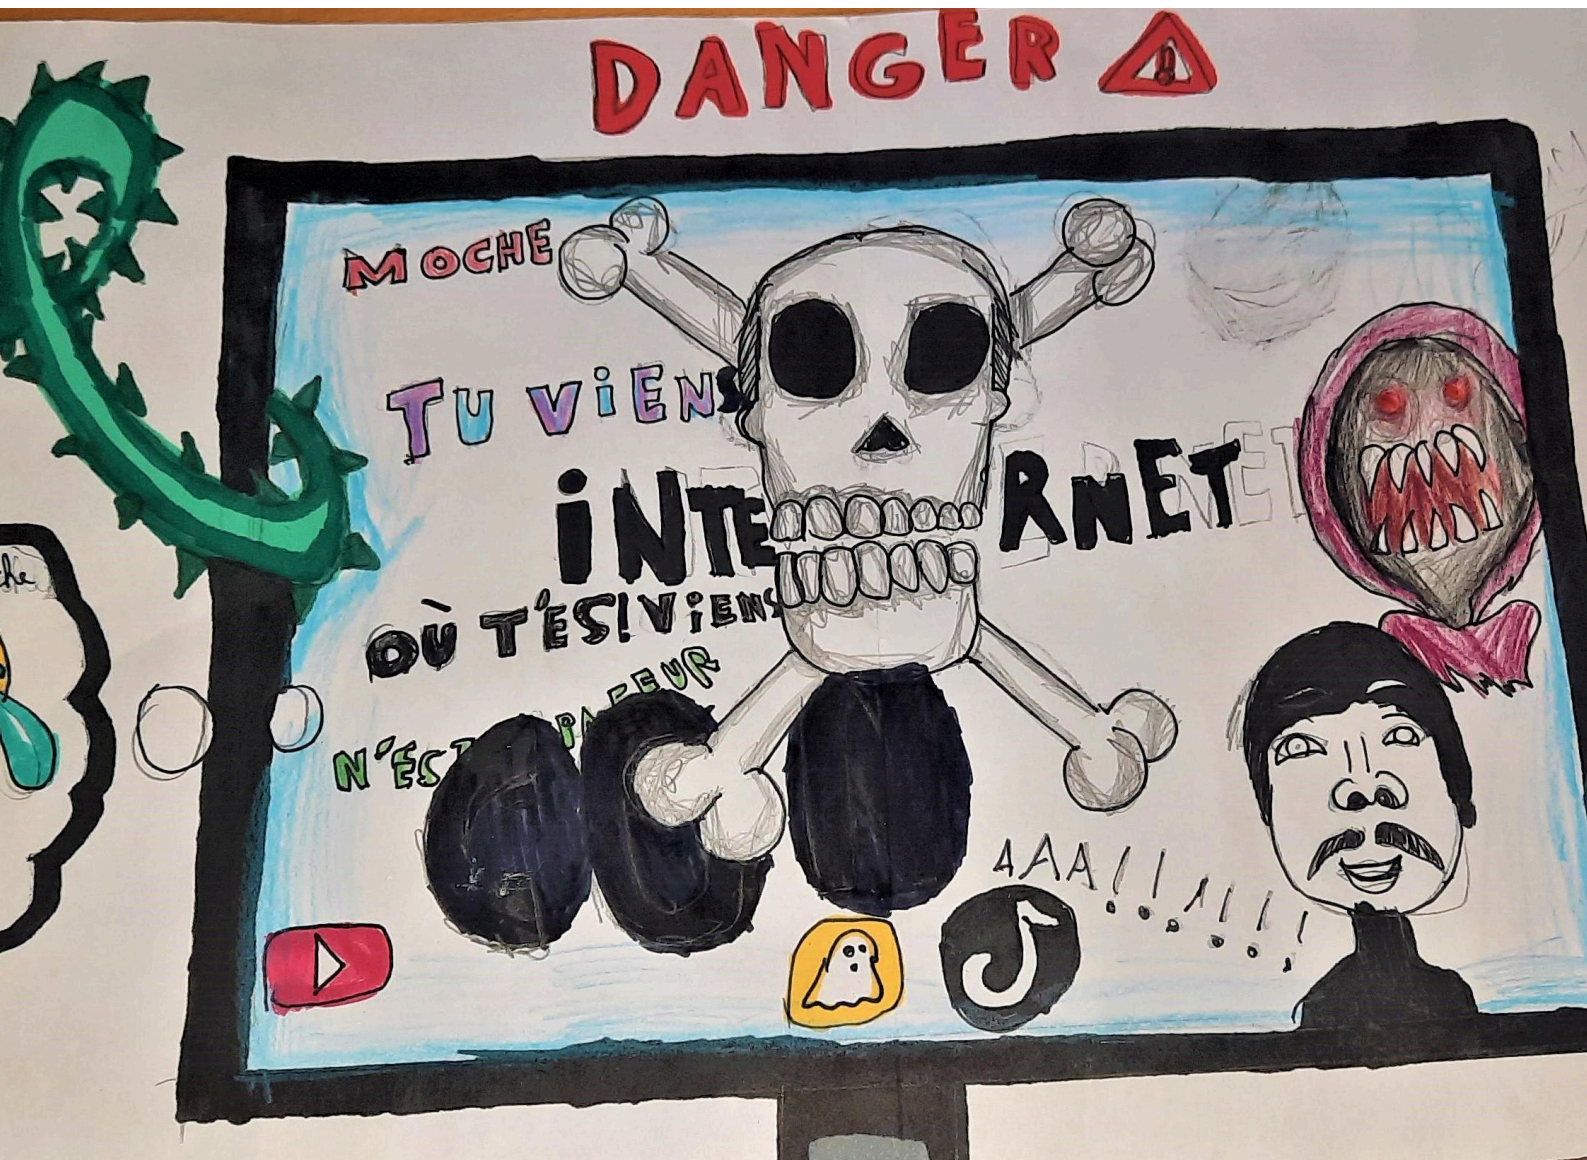 DANGER
!!
MOCHE
TU VIENS
INTERNET
OÙ T'ES! VIENS
PEUR
AAA!!!!!!